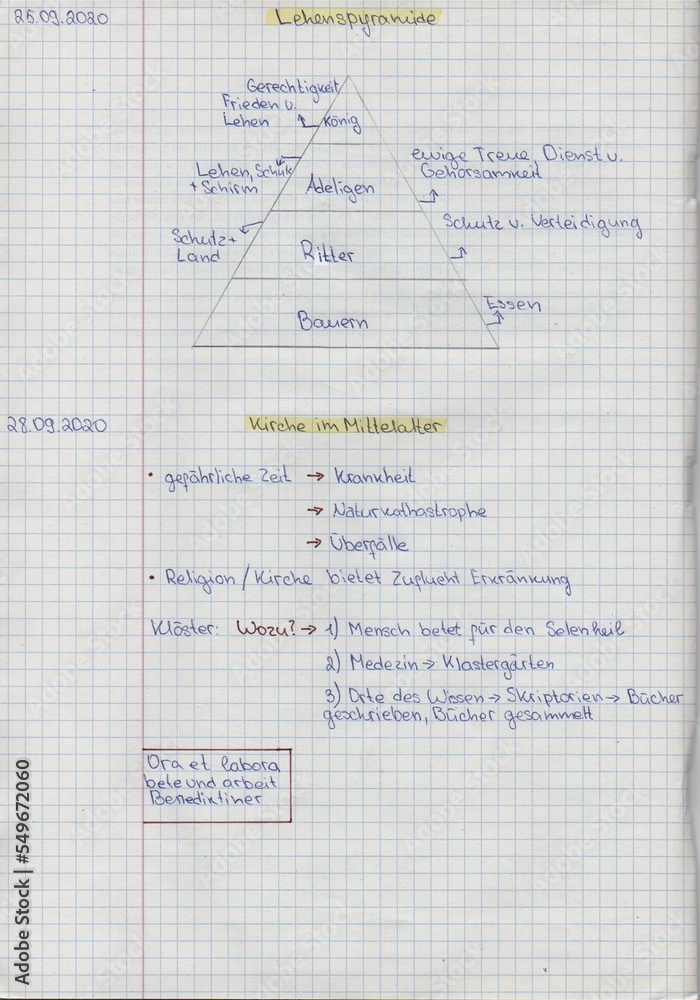 25.09.2020
Lehenspyramide
Gerechtigkeit
Frieden u.
Lehen
König
ewige Treue, Dienst u.
Gehorsamkeit
Lehen,
+ Schirm
Adeligen
Schutz u. Verteidigung
Schutz +
Land
Ritter
Essen
Bauern
28.09.2020
Kirche im Mittelalter
• gefährliche Zeit → Krankheit
→ Naturkathastrophe
→ Überfälle
• Religion / Kirche bietet Zuflucht Erkränkung
Klöster: Wozu? → 1) Mensch betet für den Selenheil
2) Medezin → Klastergärten
3) Orte des Wissen → Skriptorien → Bücher
geschrieben, Bücher gesammelt
Ora et labora
bete und arbeit
Benediktiner
Adobe Stock | #549672060